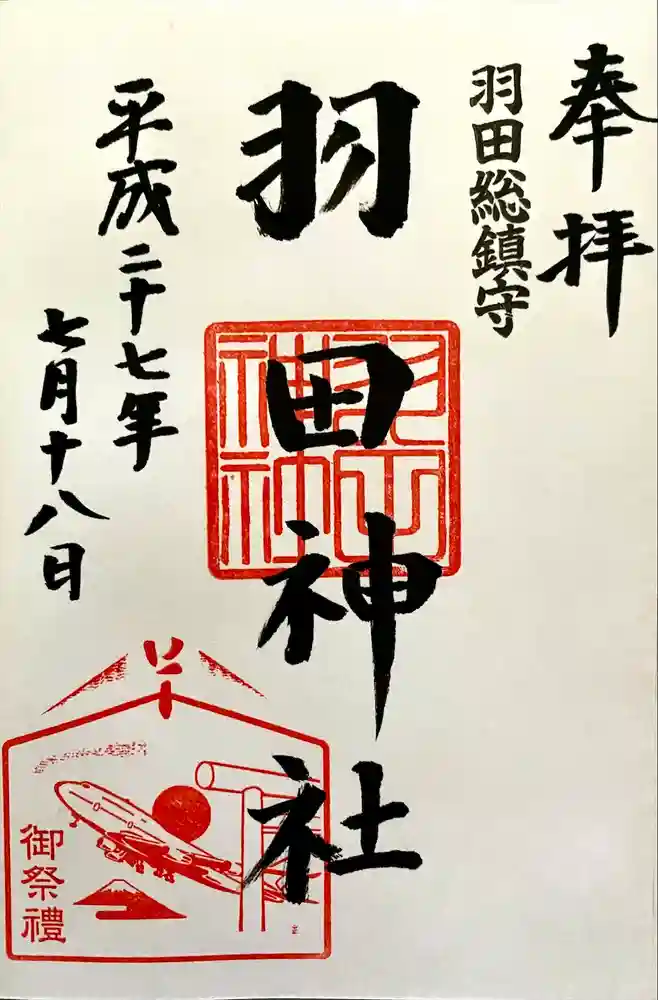 奉拝
羽田総鎮守
羽田神社
羽田神社
平成二十七年
七月十八日
御祭禮